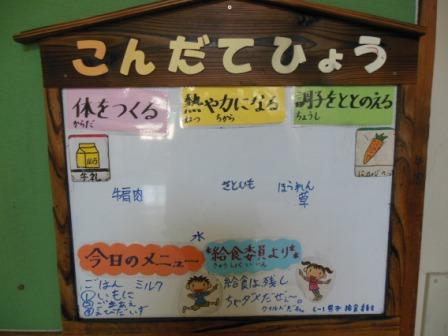 こんだてひょう
体をつくる
からだ
熱や力になる
ねつ ちから
調子をととのえる
ちょうし
牛乳
牛肩肉
さといも
ほうれん
草
水
今日のメニュー
給食委員より
きゅうしょくいいん
ごはん ミルク
①いもに
給食は残し
ちゃダメだぜぇ〜。